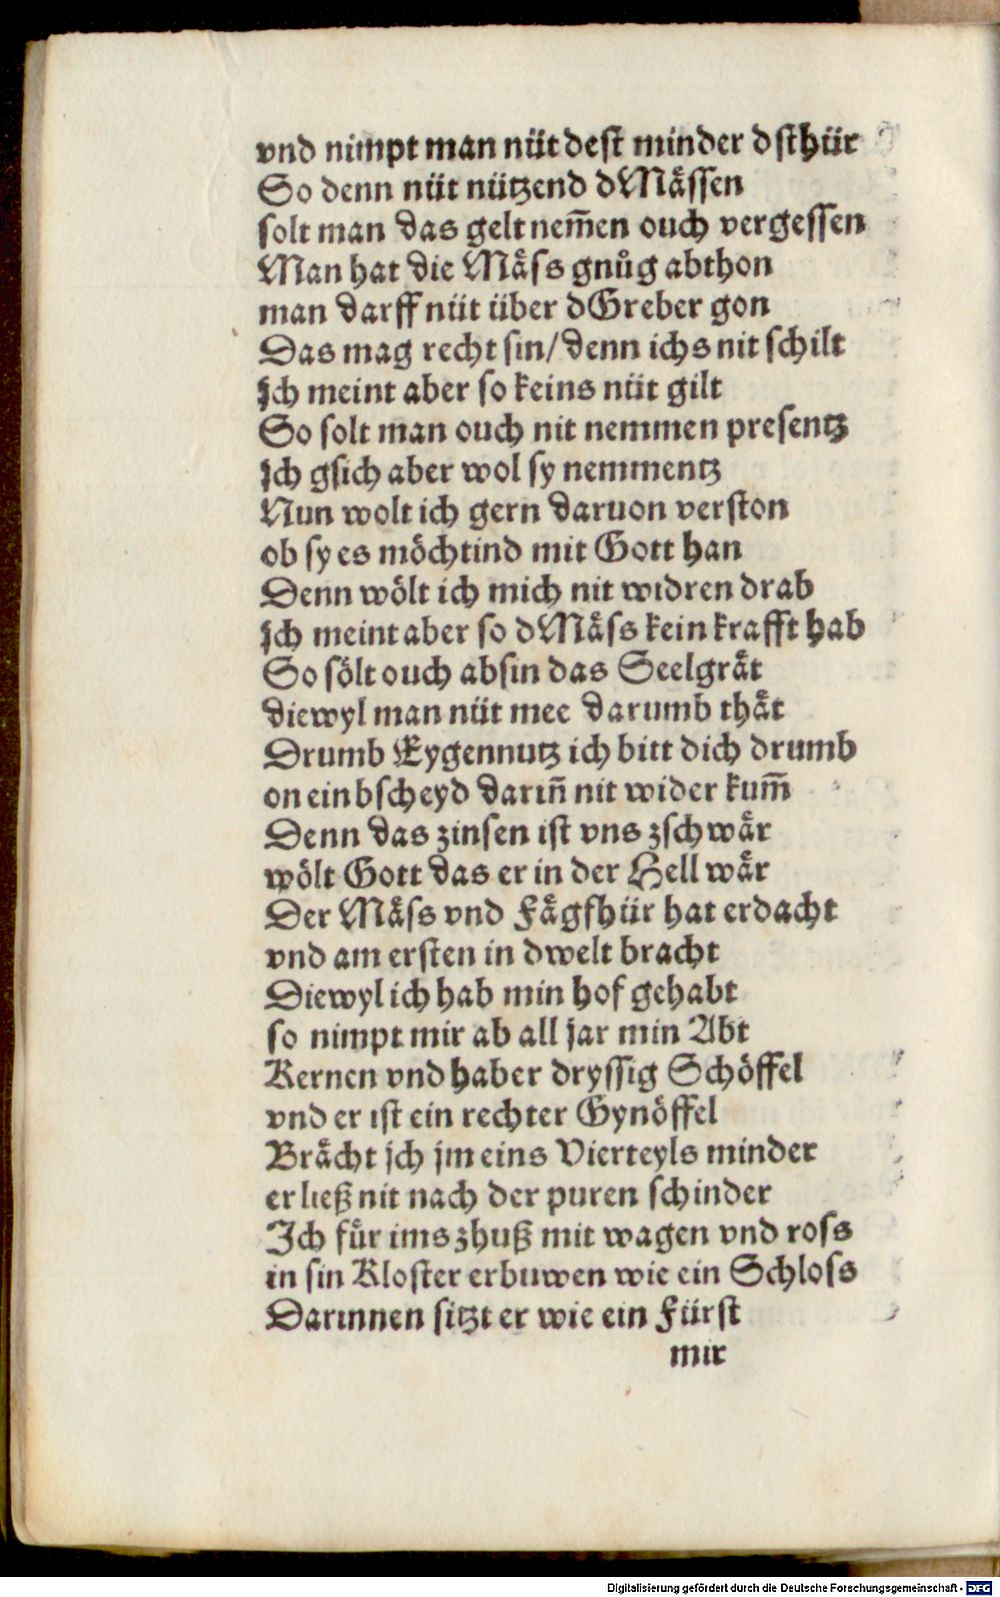 vnd nimpt man nüt dest minder dsthür
So denn nüt nützend dMåssen
solt man das gelt nem̄en ouch vergessen
Man hat die Måss gnůg abthon
man darff nüt über dGreber gon
Das mag recht sin/denn ichs nit schilt
Ich meint aber so keins nüt gilt
So solt man ouch nit nemmen presentz
Ich gsich aber wol sy nemmentz
Nun wolt ich gern daruon verston
ob sy es möchtind mit Gott han
Denn wölt ich mich nit widren drab
Ich meint aber so dMåss kein krafft hab
So sölt ouch absin das Seelgråt
diewyl man nüt mee darumb thåt
Drumb Eygennutz ich bitt dich drumb
on ein bscheyd darin̄ nit wider kum̄
Denn das zinsen ist vns zschwår
wölt Gott das er in der Hell wår
Der Måss vnd Fågfhür hat erdacht
vnd am ersten in dwelt bracht
Diewyl ich hab min hof gehabt
so nimpt mir ab all jar min Abt
Kernen vnd haber dryssig Schöffel
vnd er ist ein rechter Gynöffel
Bråcht jch jm eins Vierteyls minder
er ließ nit nach der puren schinder
Ich für ims zhuß mit wagen vnd ross
in sin Kloster erbuwen wie ein Schloss
Darinnen sitzt er wie ein Fürst
mir
Digitalisierung gefördert durch die Deutsche Forschungsgemeinschaft - DFG